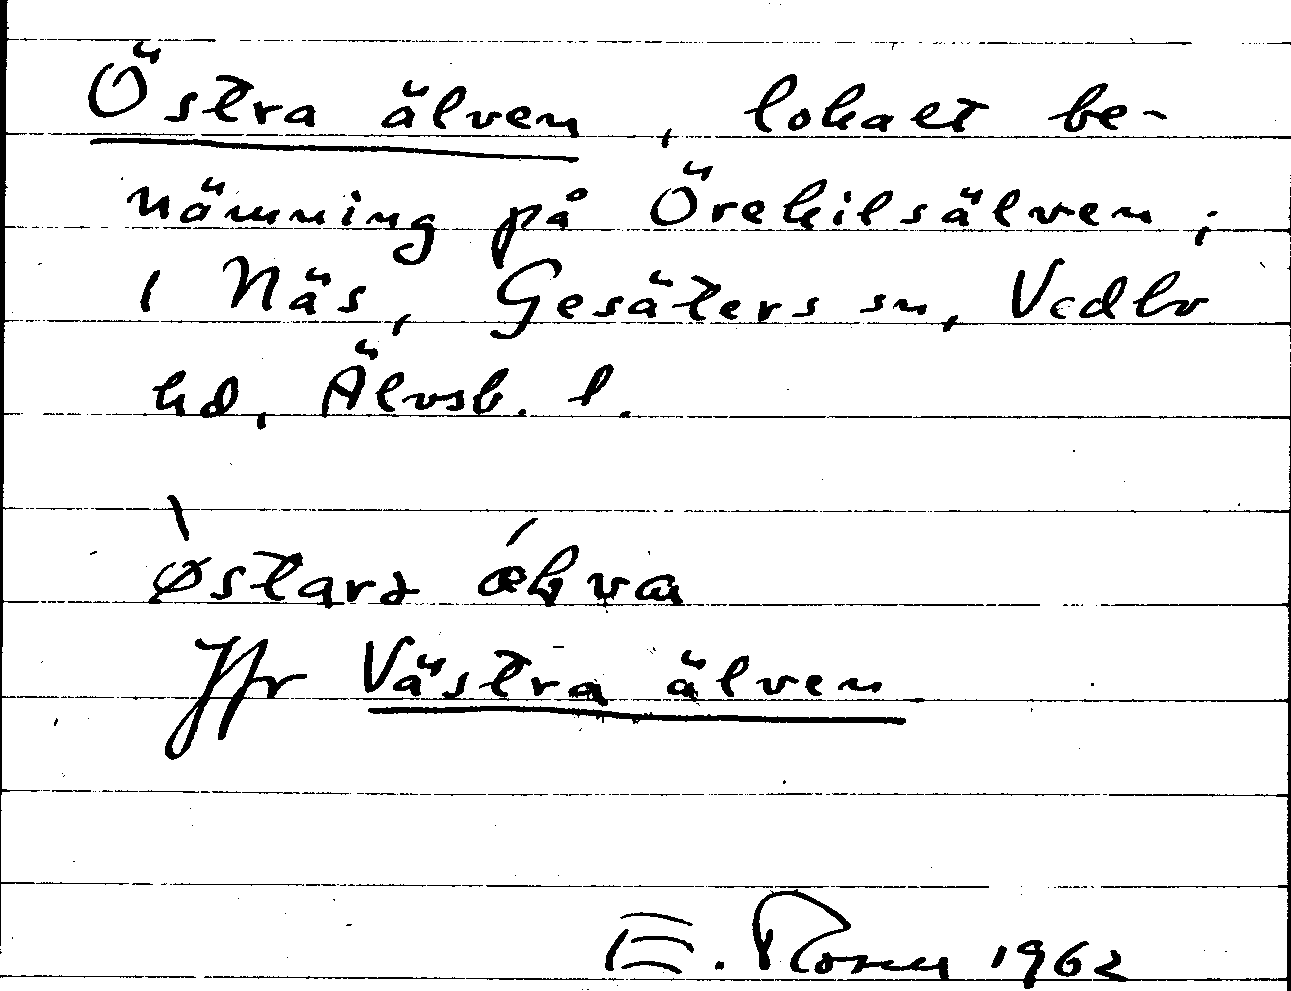 Östra älven, lokalt be-
nämning på Örekilsälven;
i Näs, Gesäters sn, Vedbo
hd, Älvsb. l.
Jfr Västra älven
E. 1962